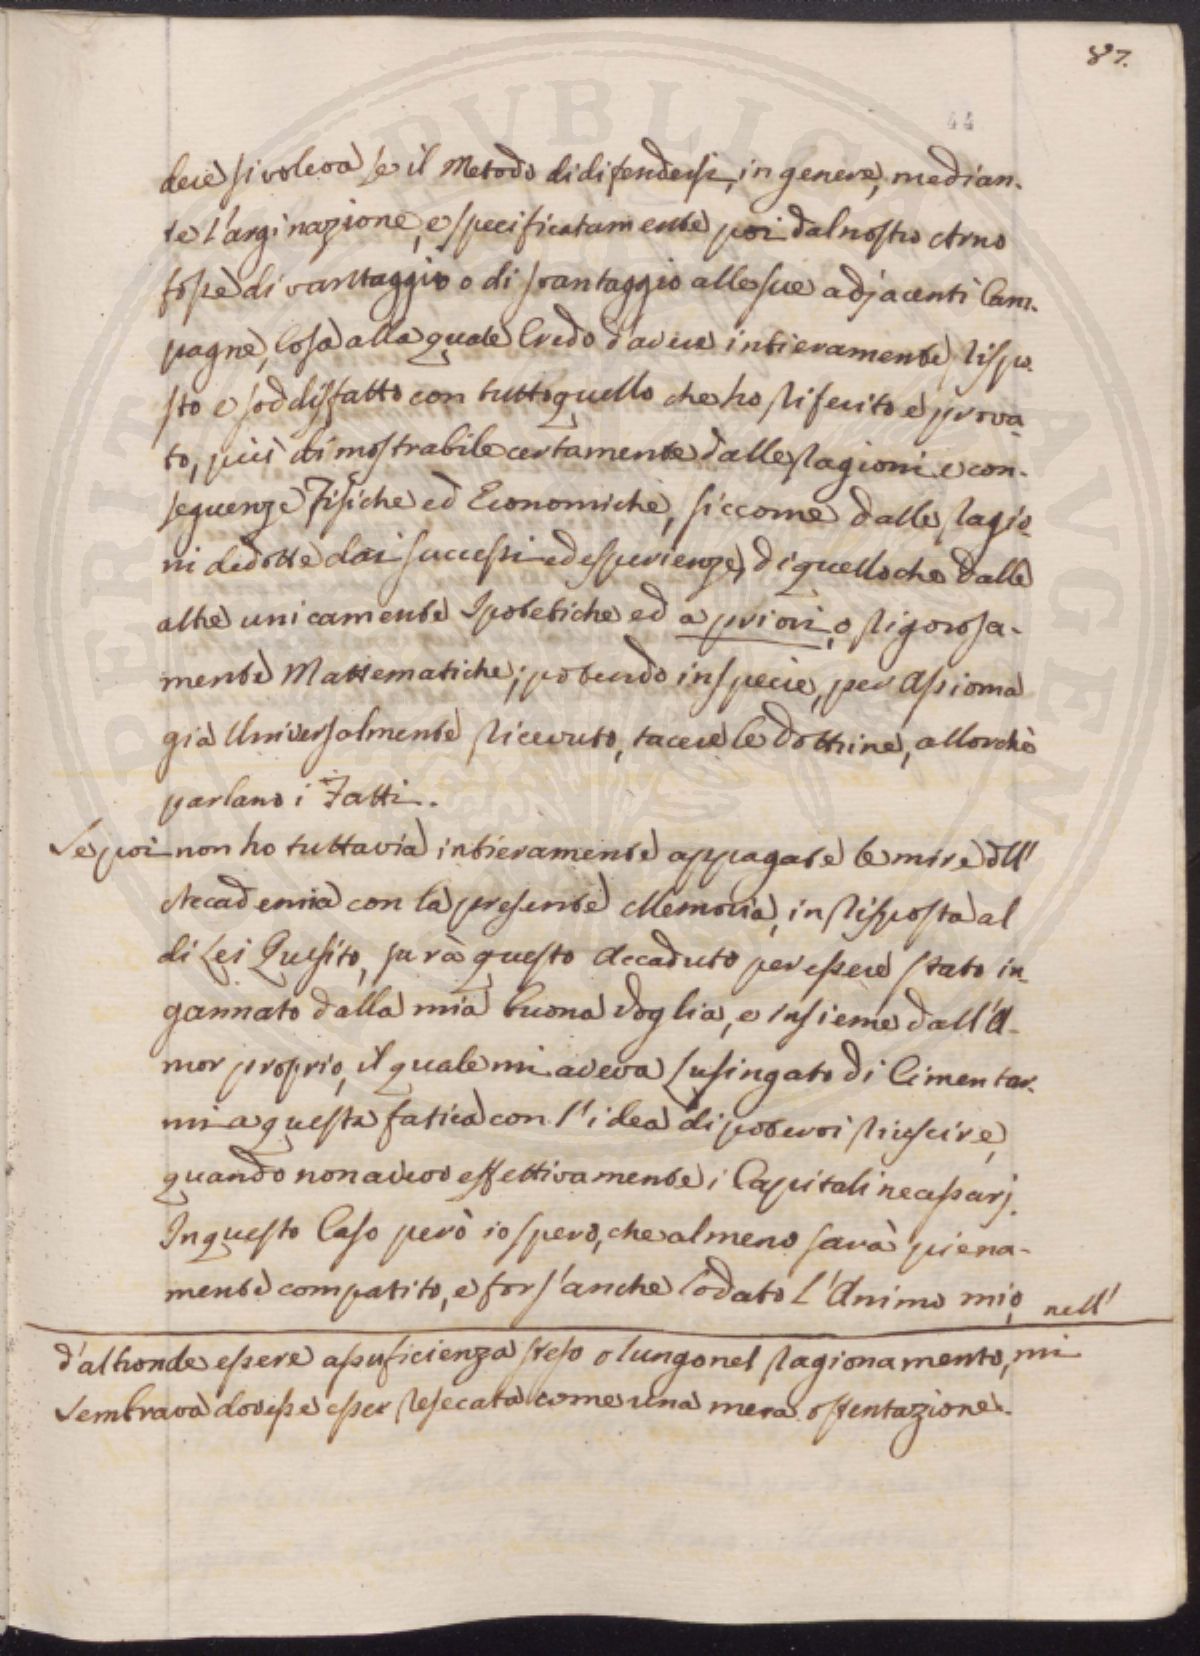 87.
44
dere si voleva se il Metodo di difendersi, in genere, median-
te l'arginazione, e specificatamente poi dal nostro Arno
fosse di vantaggio o di svantaggio alle sue adjacenti Cam-
pagne, Cosa alla quale Credo d'avere intieramente rispo-
sto e soddisfatto con tutto quello che ho riferito e prova-
to, più dimostrabile certamente dalle ragioni e con-
seguenze Fisiche ed Economiche, siccome dalle ragio-
ni dedotte dai successi ed esperienze, di quello che dalle
altre unicamente Ipotetiche ed a priori, o rigorosa-
mente Mattematiche; potendo in specie, per Assioma
già Universalmente ricevuto, tacere le dottrine, allorchè
parlano i Fatti.
Se poi non ho tuttavia intieramente appagate le mire dll'
Accademia con la presente Memoria, in risposta al
di Lei Quesito, sarà questo Accaduto per essere stato in-
gannato dalla mia buona Voglia, e insieme dall'A-
mor proprio, il quale mi aveva lusingato di Cimentar-
mi a questa fatica con l'idea di potervi riuscire,
quando non avevo effettivamente i Capitali necessarj.
In questo Caso però io spero, che almeno sarà piena-
mente compatito, e fors'anche lodato l'Animo mio, nell'
d'altronde essere a sufficienza steso o lungo nel ragionamento, mi
Sembrava dovesse esser resecata come una mera ostentazione.
PERITAS PUBLICA AUGENDA